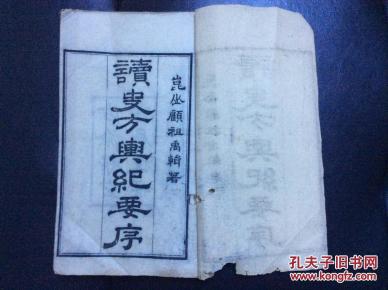 崑山顧祖禹輯著
讀史方輿紀要序
孔夫子旧书网